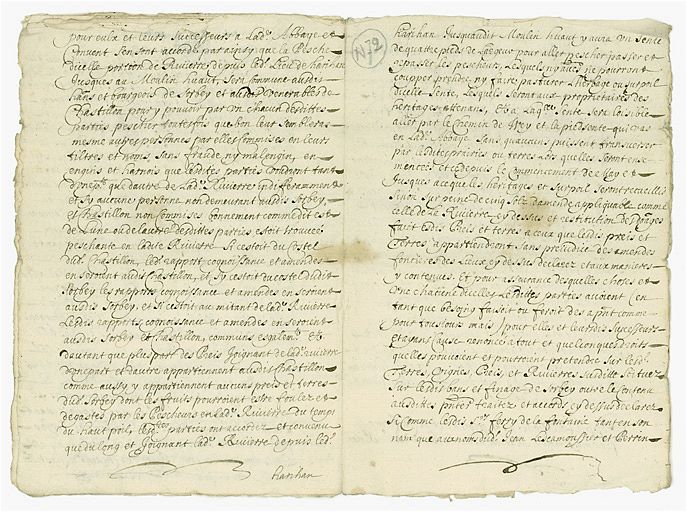 pour eulx et leurs successeurs a lad. Abbaye et
Convent sen sont accordé par ainsy que la Pesche
dicelle portion de Rivierre depuis led. Lieu de harihan
Jusques au Moulin huaut, sera commune ausdis
hans et bourgeois de Sorbey et ausdis venerables de
Chastillon pour y pouvoir par un chacun desdittes
parties pescher touttefois que bon leur semblera
mesme autres personnes par elles commises en leurs
filtres et noms, sans fraude ny malengin, en
engins et harnois que lesdites parties voudront tant
que d'autre de lad. Rivierre indifferamment
et sy aucune personne non demeurant audis Sorbey,
et Chastillon non commises donnement comme dit est
de l'une ou de l'autre desdittes parties estoit trouvee
peschante en ladite Rivierre si cestoit du costel
dud. Chastillon, led. rapport cognoissance et amendes
en seroient audis Chastillon, et sy cestoit du costel dudit
Sorbey les rapports cognoissance et amendes en seroient
audis Sorbey, et si cestoit au mitant de lad. Rivierre
Lesdis rapports cognoissance et amendes en seroient
audis Sorbey et Chastillon, communs esgalem. Et
d'autant que pluspart des Preis Joignant de lad. riviere
d'une part et d'autre appartiennent ausdis Chastillon
comme aussy y appartiennent aucuns preis et terres
dud. Sorbey dont les fruits pourroient estre foulez et
degastés par les Pescheurs en lad. Rivierre du temps
du haut poil, lesdites parties ont accordez et convenu
que du long et Joignant lad. Rivierre depuis led.
harihan
N 72
harihan Jusqu'audit Moulin huaut y aura un sente
de quatre pieds de Largeur pour aller pescher passer et
repasser les pescheurs, Lesquels ny autres ne pourront
coupper prendre ny faire pasturer l'herbage ou surpoil
dicelle sente, Lesquels seront aux proprietaires des
heritages attenans, Et a Laqlle sente sera loisible
aller par le chemin de Frey et la piedsente qui vat
en lad. Abbaye sans qu'aucuns puissent transverser
par lesdites prairies ou terres Lors qu'elles seront ense
mencees et depuis le commencement de May et
Jusques a ce que les heritages et surpoil seront recueillis
Sinon sur peine de cinq solz d'amende applicquable comme
celle de la Rivierre cy dessus et restitution de domages
faict es dis Preis et terres a ceux que lesdis preis et
Terres appartiendront sans preiudice des amendes
foncieres des Lieux cy dessus declarez et aux manieres
y contenues. Et pour assurance desquelles choses et
Une chacune d'icelles lesdittes parties avoient (en
tant que besoing faisoit ou feroit des a pnt comme
pour tousiours mais) pour elles et leursdis successeurs
et ayans cause renoncé a tout et quelconque droits
quelles pouvoient et pourroient pretendre sur lesd.
Terres, Vignes, Preis, et Rivierres susdittes scituez
sur lesdis ban et finage de Sorbey outre le contenu
ausdittes pnter traitez et accords cy dessus declarez.
Si comme lesdis Srs Ferry de la fontaine tant en son
nom que au nom dud. Jean Lesamoussur et Perren